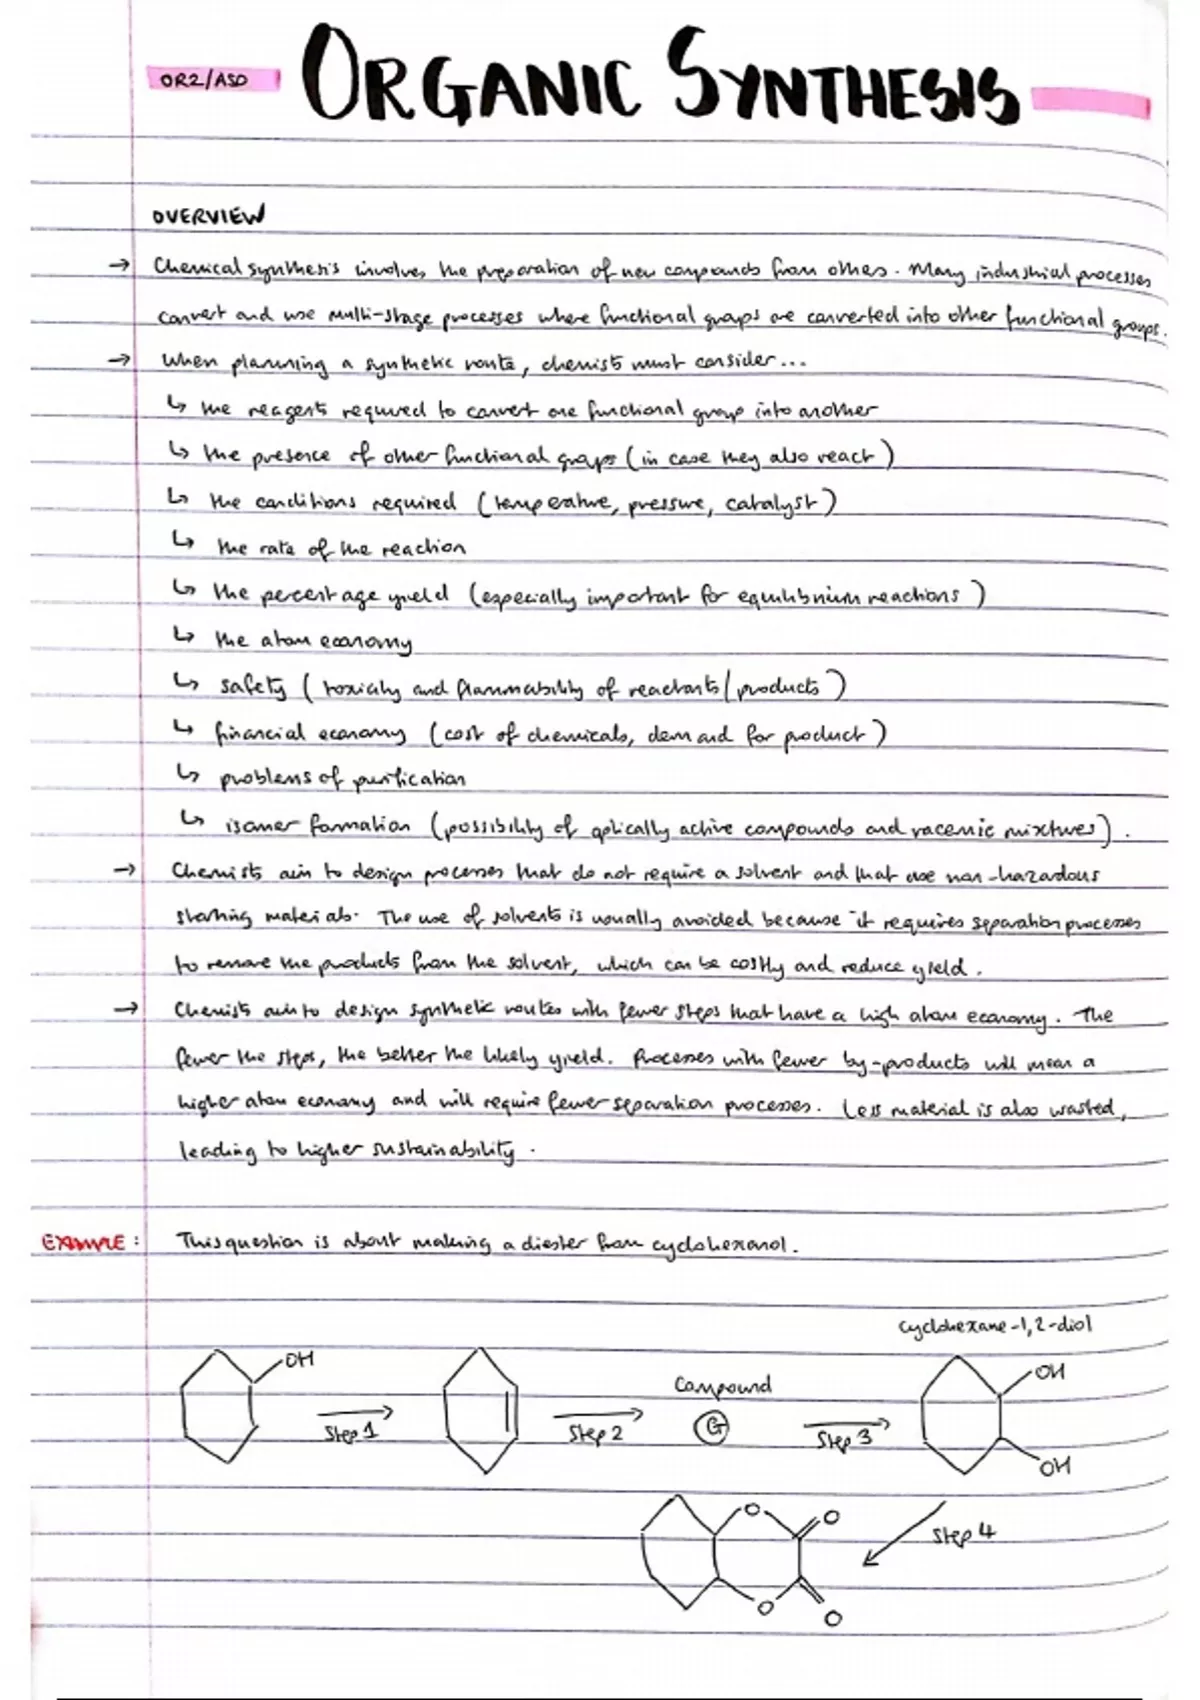 OR2/ASD ORGANIC SYNTHESIS
OVERVIEW
→ Chemical synthesis involves the preparation of new compounds from others. Many industrial processes
convert and use multi-stage processes where functional groups are converted into other functional groups.
→ When planning a synthetic route, chemists must consider...
↳ the reagents required to convert one functional group into another
↳ the presence of other functional groups (in case they also react)
↳ the conditions required (temperature, pressure, catalyst)
↳ the rate of the reaction
↳ the percentage yield (especially important for equilibrium reactions)
↳ the atom economy
↳ safety (toxicity and flammability of reactants/products)
↳ financial economy (cost of chemicals, demand for product)
↳ problems of purification
↳ isomer formation (possibility of optically active compounds and racemic mixtures).
→ Chemists aim to design processes that do not require a solvent and that use non-hazardous
starting materials. The use of solvents is usually avoided because it requires separation processes
to remove the products from the solvent, which can be costly and reduce yield.
→ Chemists aim to design synthetic routes with fewer steps that have a high atom economy. The
fewer the steps, the better the likely yield. Processes with fewer by-products will mean a
higher atom economy and will require fewer separation processes. Less material is also wasted,
leading to higher sustainability.
EXAMPLE: This question is about making a diester from cyclohexanol.
cyclohexane-1,2-diol
OH
Step 1
Step 2
Compound
G
Step 3
OH
OH
Step 4
O
O
O
O